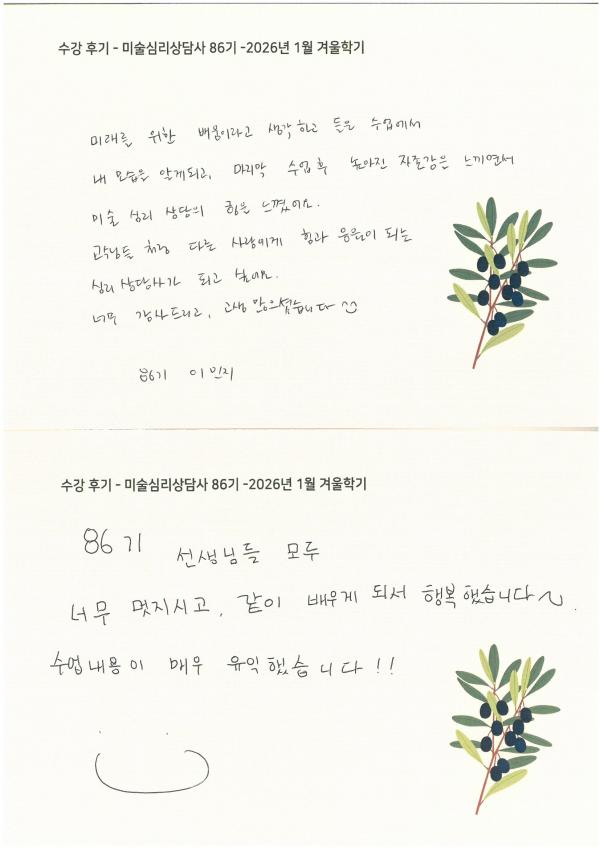 수강 후기 - 미술심리상담사 86기 -2026년 1월 겨울학기
미래를 위한 배움이라고 생각하고 들은 수업에서
내 모습을 알게되고, 마지막 수업 후 높아진 자존감을 느끼면서
미술 심리 상담의 힘을 느꼈어요.
교수님들 처럼 다른 사람에게 힘과 응원이 되는
심리상담사가 되고 싶어요.
너무 감사드리고, 고생 많으셨습니다
86기 이민지
수강 후기 - 미술심리상담사 86기 -2026년 1월 겨울학기
86기 선생님들 모두
너무 멋지시고, 같이 배우게 되서 행복했습니다~.
수업내용이 매우 유익했습니다!!